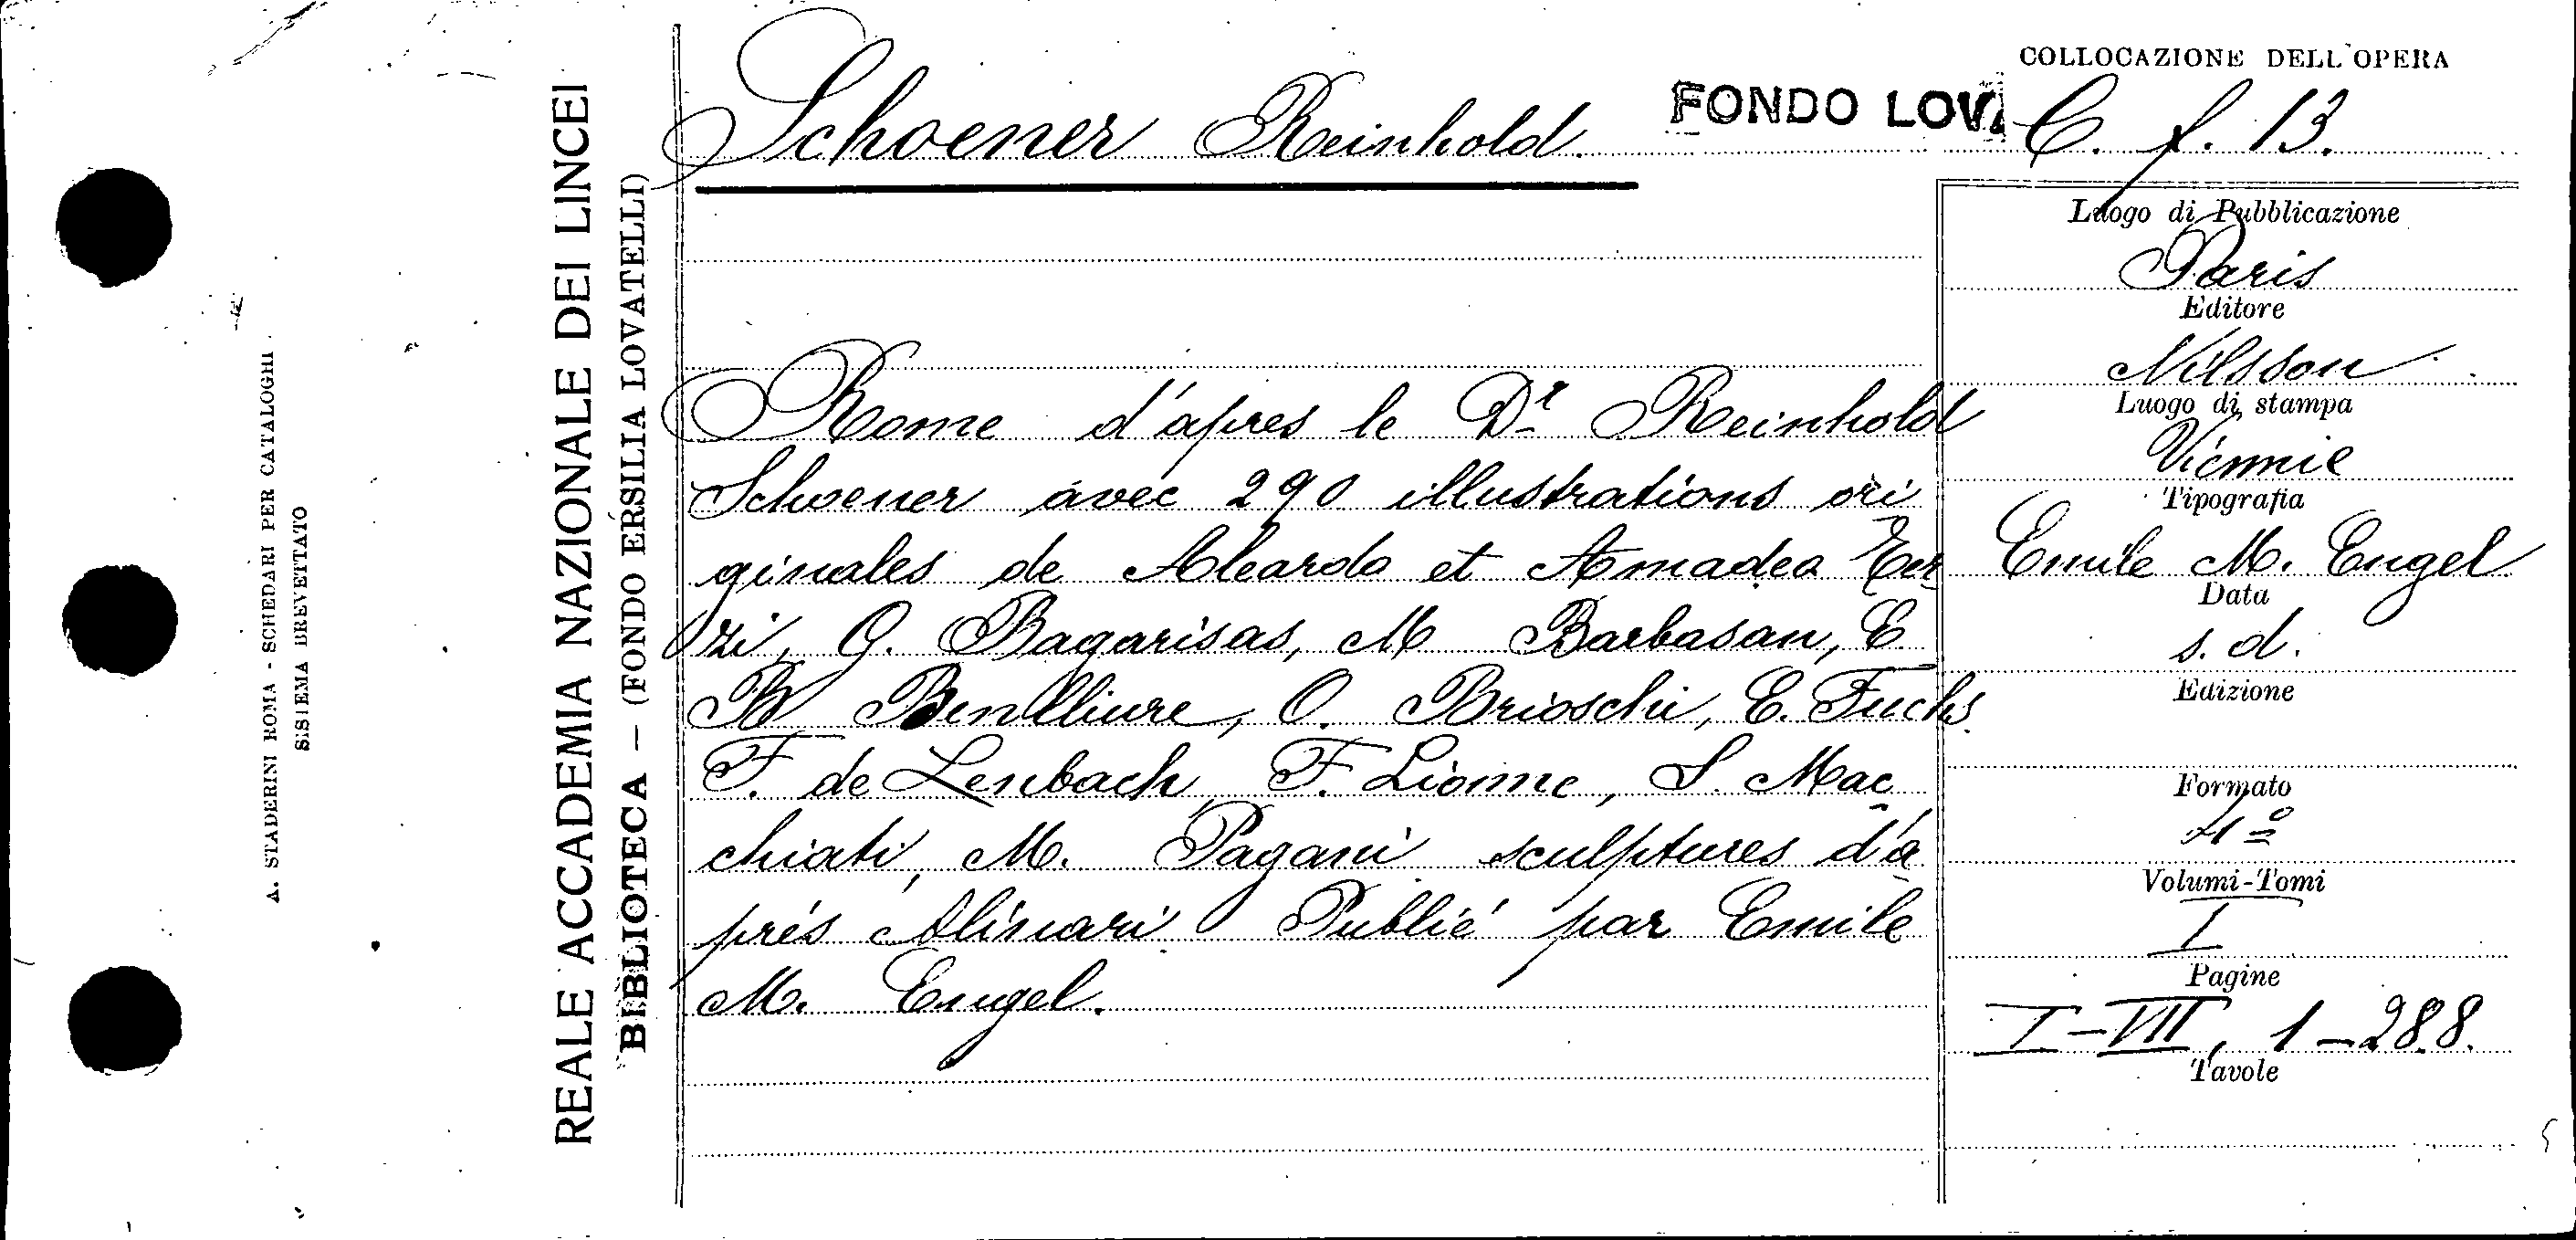 COLLOCAZIONE DELL'OPERA
Schoener Reinhold.
FONDO LOV.
C. f. 13.
Rome d'apres le Dr Reinhold
Schoener avec 290 illustrations ori
ginales de Aleardo et Amadea Ter
zi, G. Bagarisas, M Barbasan, E.
B Benlliure, O. Brioschi, E. Fuchs
F. de Lenbach, F. Lionne, S. Mac
chiati, M. Pagani sculptures d'a
prés Alinari Publié par Emile
M. Engel.
Luogo di Pubblicazione
Paris
Editore
Nilsson
Luogo di stampa
Vienne
Tipografia
Emile M. Engel
Data
s. d.
Edizione
Formato
4º
Volumi-Tomi
I
Pagine
I-VII, 1-288.
Tavole
REALE ACCADEMIA NAZIONALE DEI LINCEI
BIBLIOTECA — (FONDO ERSILIA LOVATELLI)
A. STADERINI ROMA - SCHEDARI PER CATALOGHI
SISTEMA BREVETTATO